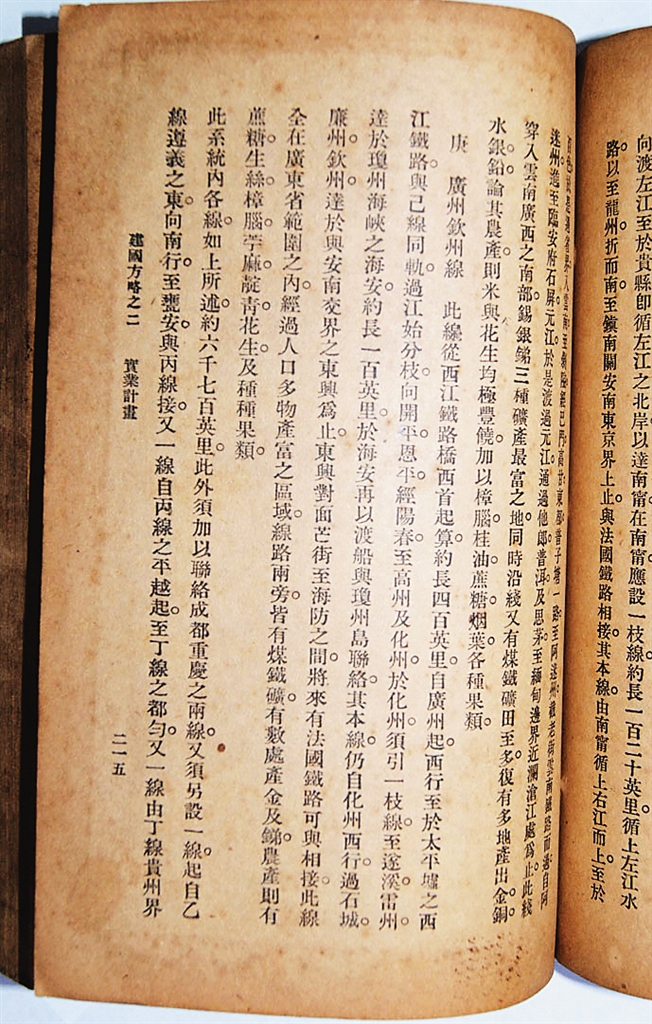 向渡左江至於貴縣卽循左江之北岸以達南甯在南甯應設一枝線約長一百二十英里循上左江水
路以至龍州折而南至鎭南關安南東京界上止與法國鐵路相接其本線由南甯循上右江而上至於
迷州進至臨安府石屏元江於是渡過元江通過他郞普洱及思茅至緬甸邊界近瀾滄江處爲止此綫
穿入雲南廣西之南部錫銀銻三種礦產最富之地同時沿綫又有煤鐵礦田至多復有多地產出金銅
水銀鉛論其農產則米與花生均極豐饒加以樟腦桂油蔗糖烟葉各種果類
庚　廣州欽州線　此線從西江鐵路橋西首起算約長四百英里自廣州起西行至於太平墟之西
江鐵路與己線同軌過江始分枝向開平恩平經陽春至高州及化州於化州須引一枝線至遂溪雷州
達於瓊州海峽之海安約長一百英里於海安再以渡船與瓊州島聯絡其本線仍自化州西行過石城
廉州欽州達於與安南交界之東興爲止東興對面芒街至海防之間將來有法國鐵路可與相接此線
全在廣東省範圍之內經過人口多物產富之區域線路兩旁皆有煤鐵礦有數處產金及銻農產則有
蔗糖生絲樟腦苧麻靛靑花生及種種果類
此系統內各線如上所述約六千七百英里此外須加以聯絡成都重慶之兩線又須另設一線起自乙
線遵義之東向南行至甕安與丙線接又一線自丙線之平越起至丁線之都勻又一線由丁線貴州界
建國方略之二　實業計畫
二一五